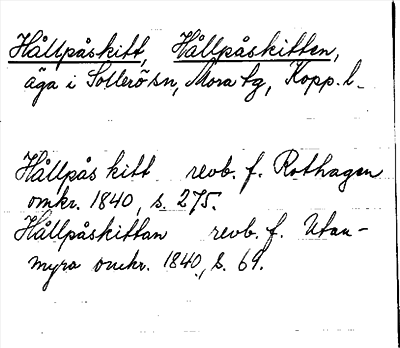 Hållpåskitt, Hållpåskitten,
äga i Sollerö sn, Mora tg, Kopp. l.
Hållpås kitt revb. f. Rothagen
omkr. 1840, s. 275.
Hållpåskittan revb. f. Utan-
myra omkr. 1840, s. 69.